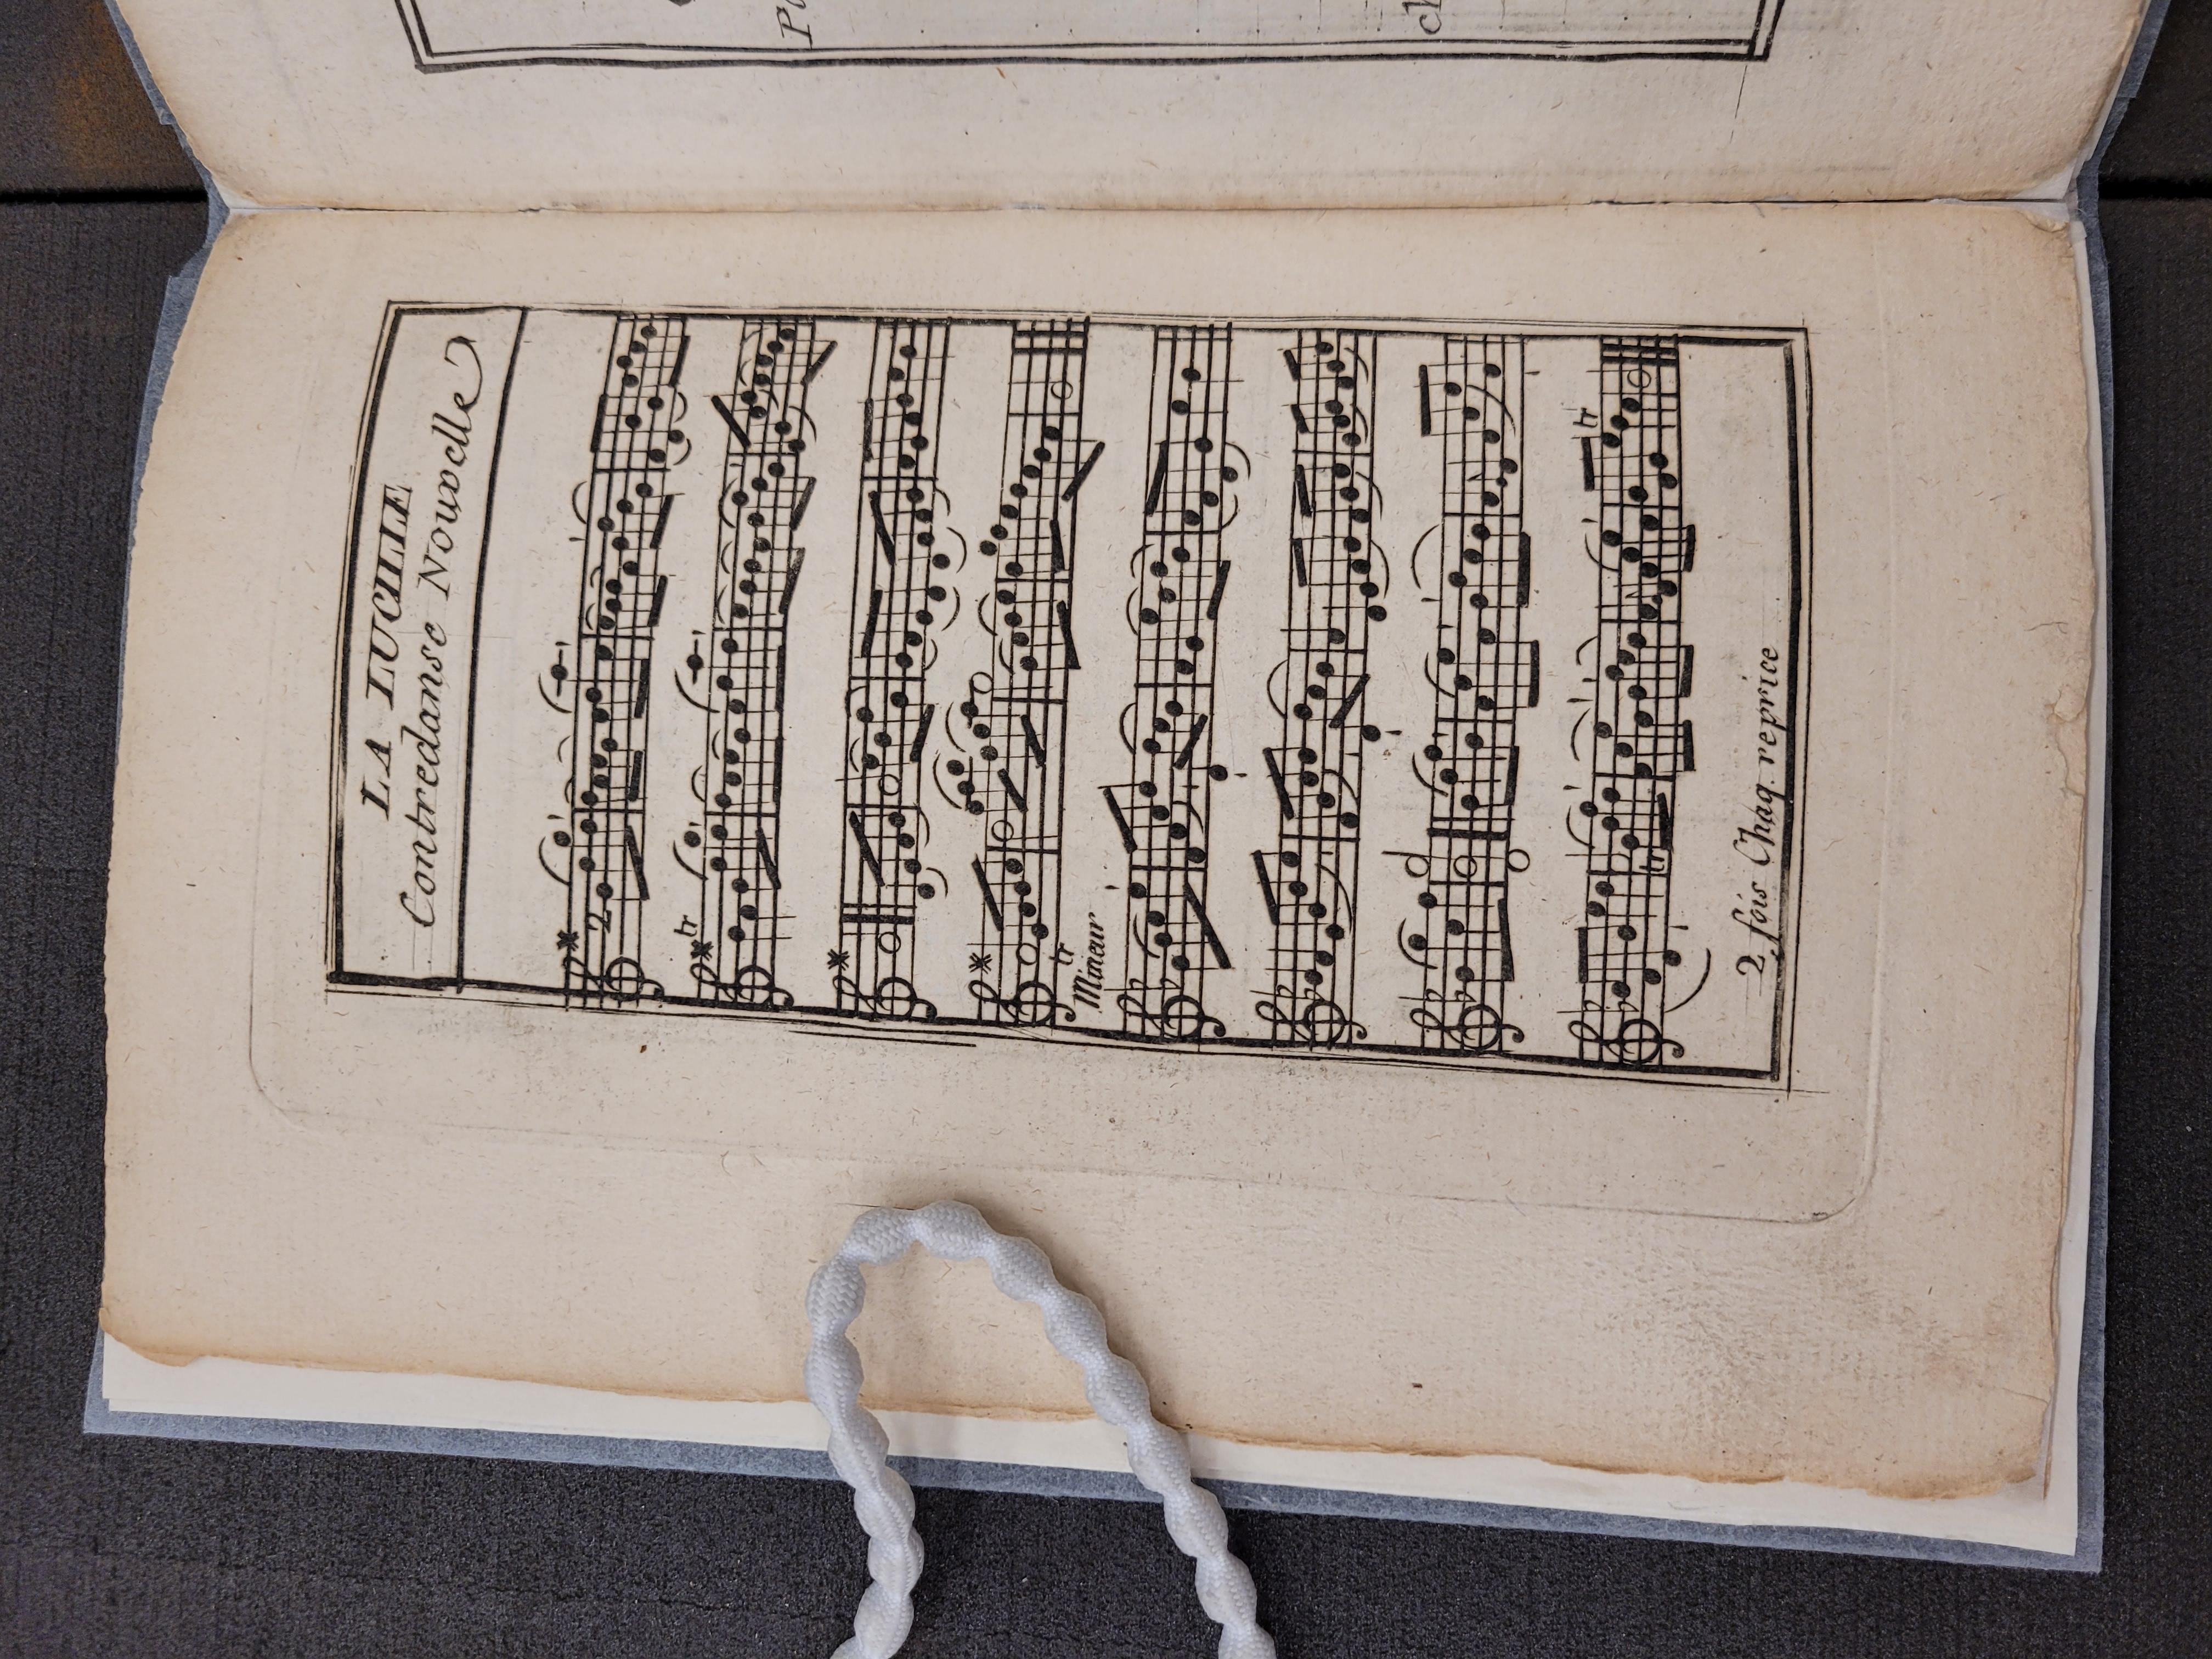 LA LUCILLE
Contredanse Nouvelle
2
tr
tr
Mineur
tr
tr
2 fois Chaq. reprice